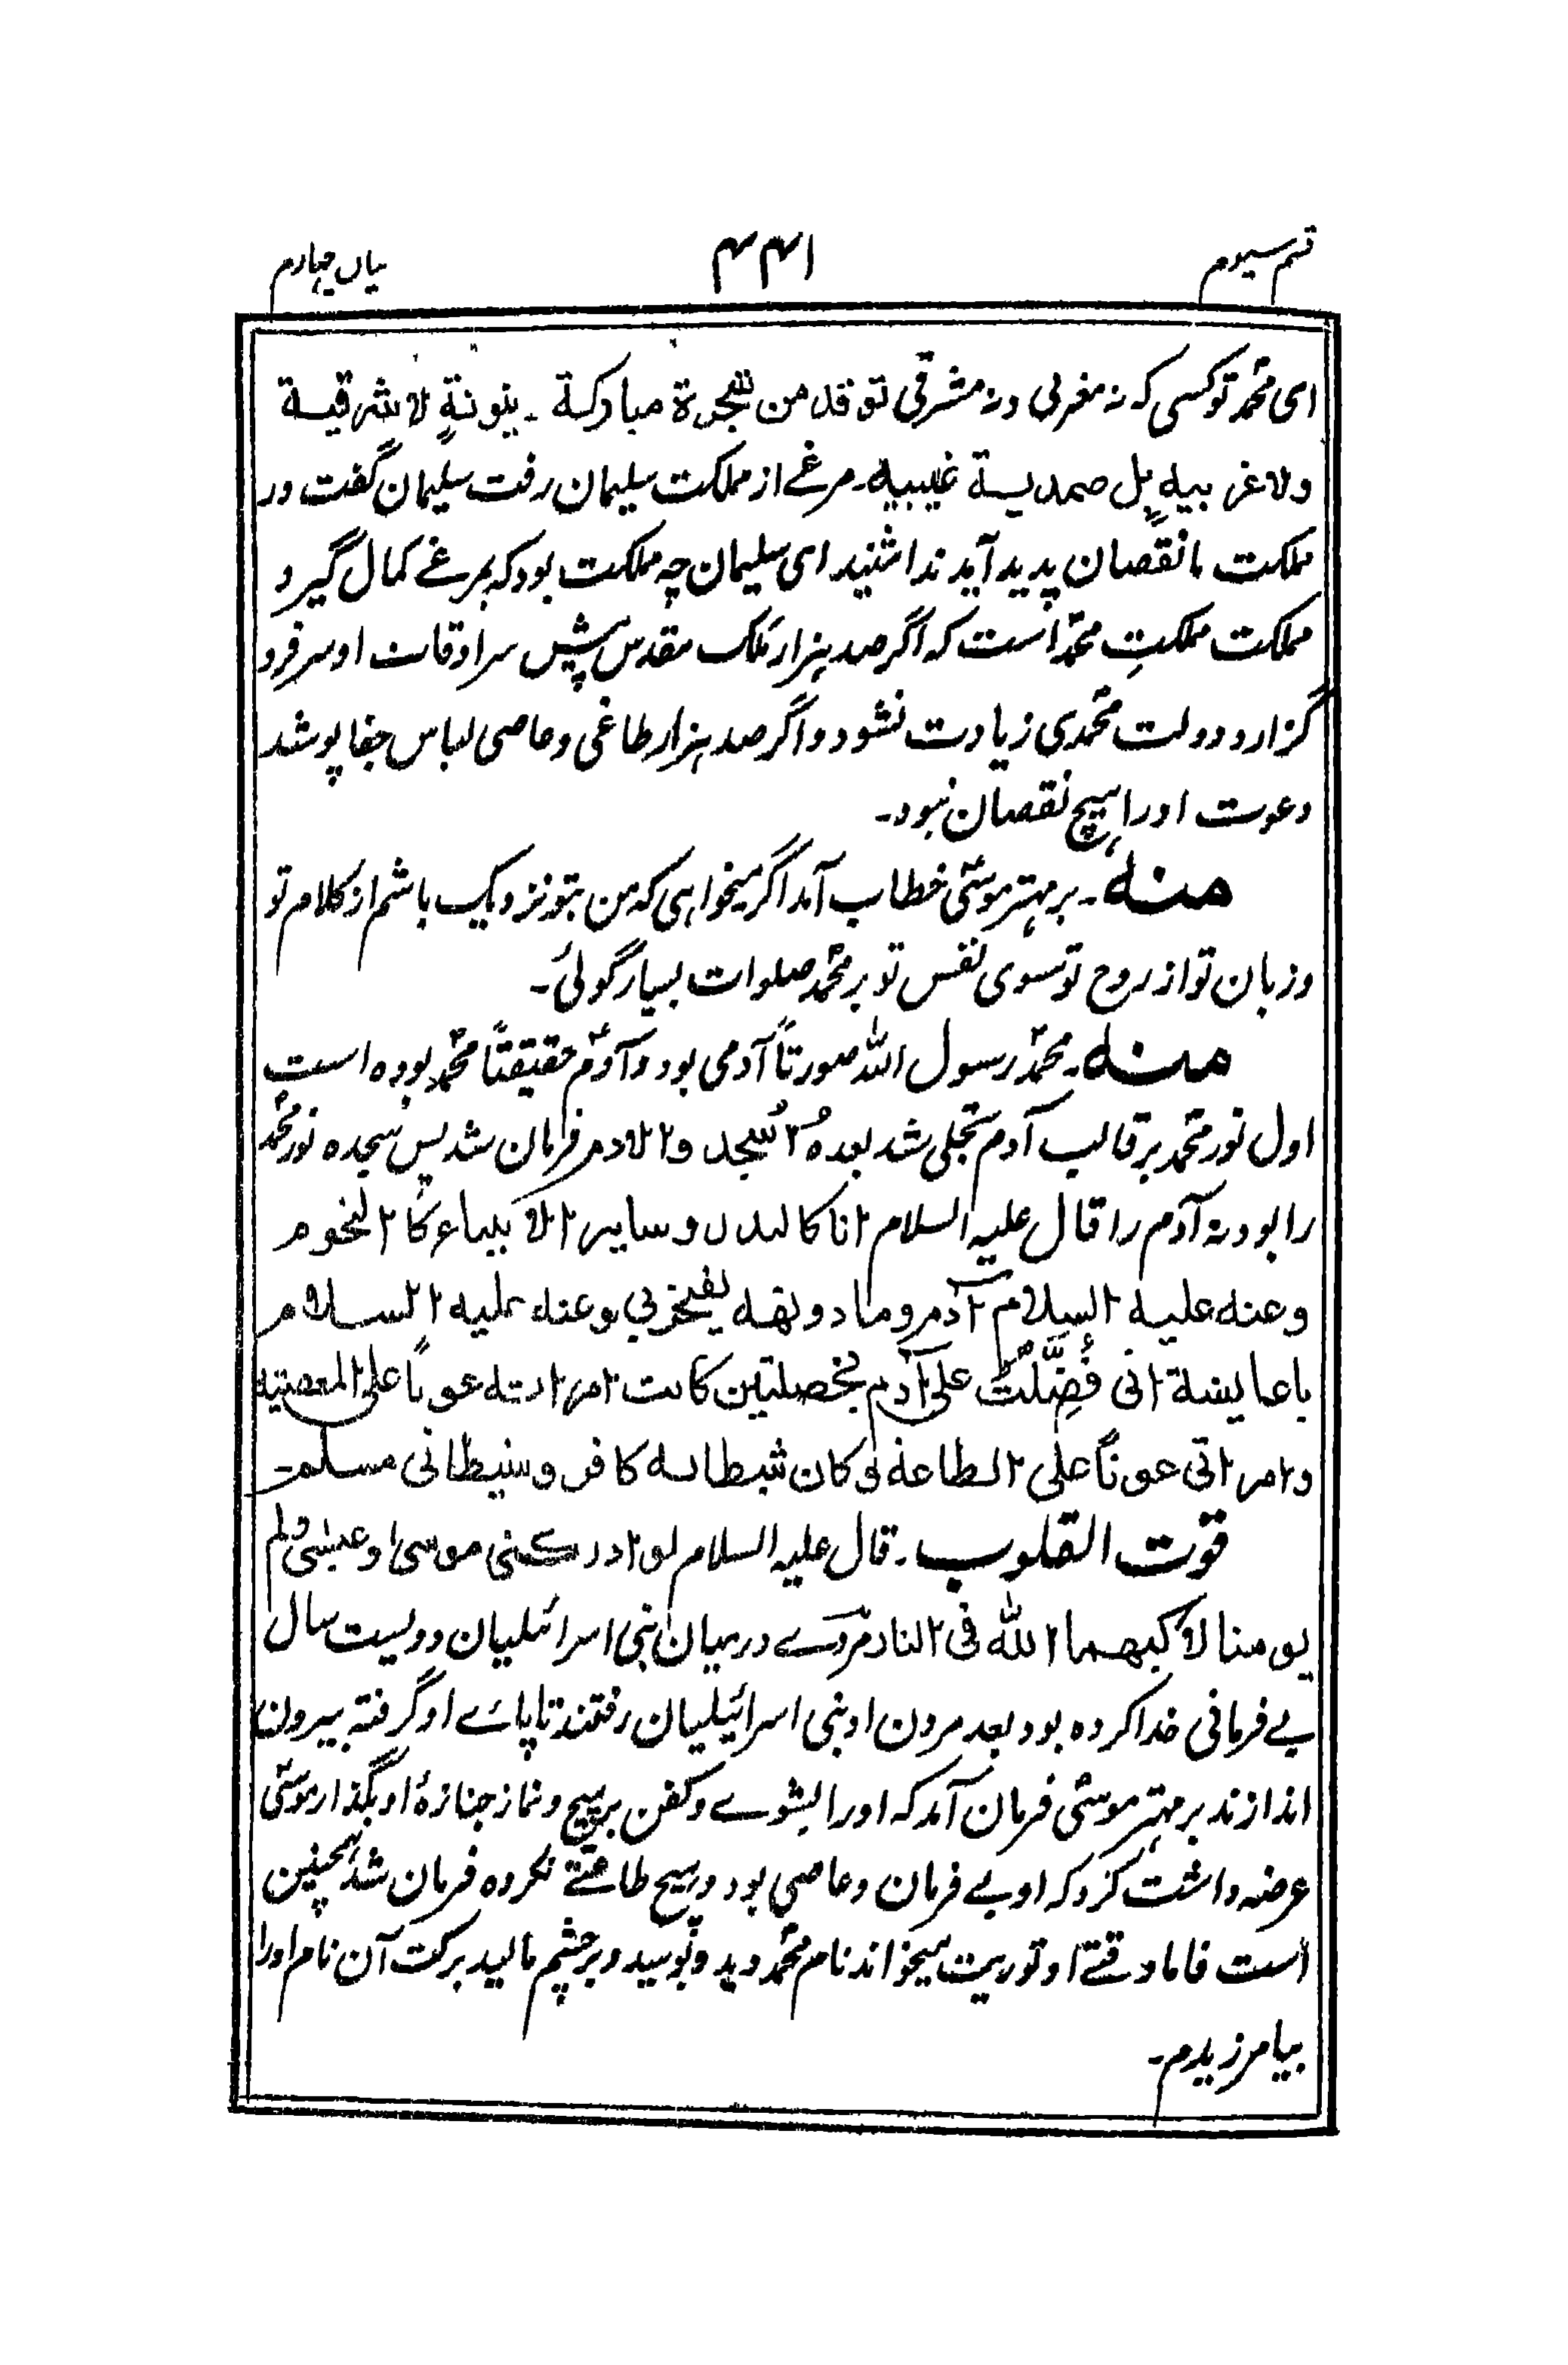 قسم سیوم ۴۴۱ بیان چهارم
ای محمدؐ تو کسی که نه مغربی و نه مشرقی توقد من شجرة مبارکة ـ زیتونةٍ لا شرقیة
ولا غربیه بل صمدیة غیبیه ـ مرغے از مملکت سلیمان رفت سلیمان گفت در
مملکت ما نقصان پدید آید ندا شنید ای سلیمان چه مملکت بود که بمرغے کمال گیرد
مملکت مملکتِ محمدؐ است که اگر صد هزار مَلک مقدس پیش سرادقات او سر فرو
گزارد دولت محمدی زیادت نشود و اگر صد هزار طاغی و عاصی لباس جفا پوشد
دعوت او را هیچ نقصان نبود ـ
منه ـ بر مهتر موسیٰؑ خطاب آمد اگر میخواهی که من بتو نزدیک باشم از کلام تو
و زبان تو از روح تو سوی نفس تو بر محمدؐ صلوات بسیار گوئی ـ
منه ـ محمدؐ رسول الله صورتاً آدمی بود و آدمؑ حقیقتاً محمدؐ بوده است
اول نور محمدؐ بر قالب آدم متجلی شد بعده اُسجدوا لادم فرمان شد پس سجده نور محمدؐ
را بود نه آدم را قال علیه السلام انا کالبدر و سایر الانبیاء کالنجوم
وعنه علیه السلام آدم وما دونه یفتخر بی وعنه علیه السلام
یا عایشة انی فُضِّلْتُ علی آدم بخصلتین کانت امراته عوناً علی المعصیته
وامراتی عوناً علی الطاعة وکان شیطانه کافر وشیطانی مسلم ـ
قوت القلوب ـ قال علیه السلام لو ادرکنی موسیٰ و عیسیٰ ولم
یومنا لاکبهما الله فی النار مردے درمیان بنی اسرائیلیان دویست سال
بے فرمانی خدا کرده بود بعد مردن او بنی اسرائیلیان رفتند تا پاے او گرفته بیرون
اندازند بر مهتر موسیٰؑ فرمان آمد که او را بشوے و کفن بر پیچ و نماز جنازهٔ او بگذار موسیٰؑ
عرضه داشت کرد که او بے فرمان و عاصی بود و هیچ طاعتے نکرده فرمان شد همچنین
است فاما وقتے او توریت میخواند نام محمدؐ دید و بوسید و بر چشم مالید برکت آن نام او را
بیامرزیدم ـ